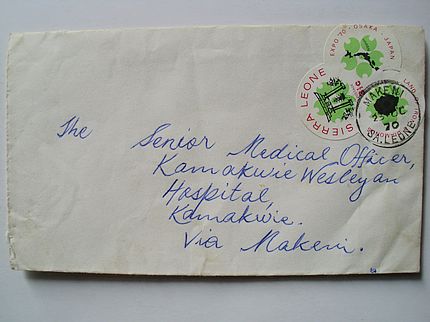 EXPO 70 - OSAKA - JAPAN
SIERRA LEONE
LAND
MAKENI
70
S. LEONE
The Senior Medical Officer,
Kamakwie Wesleyan
Hospital,
Kamakwie.
Via Makeni.